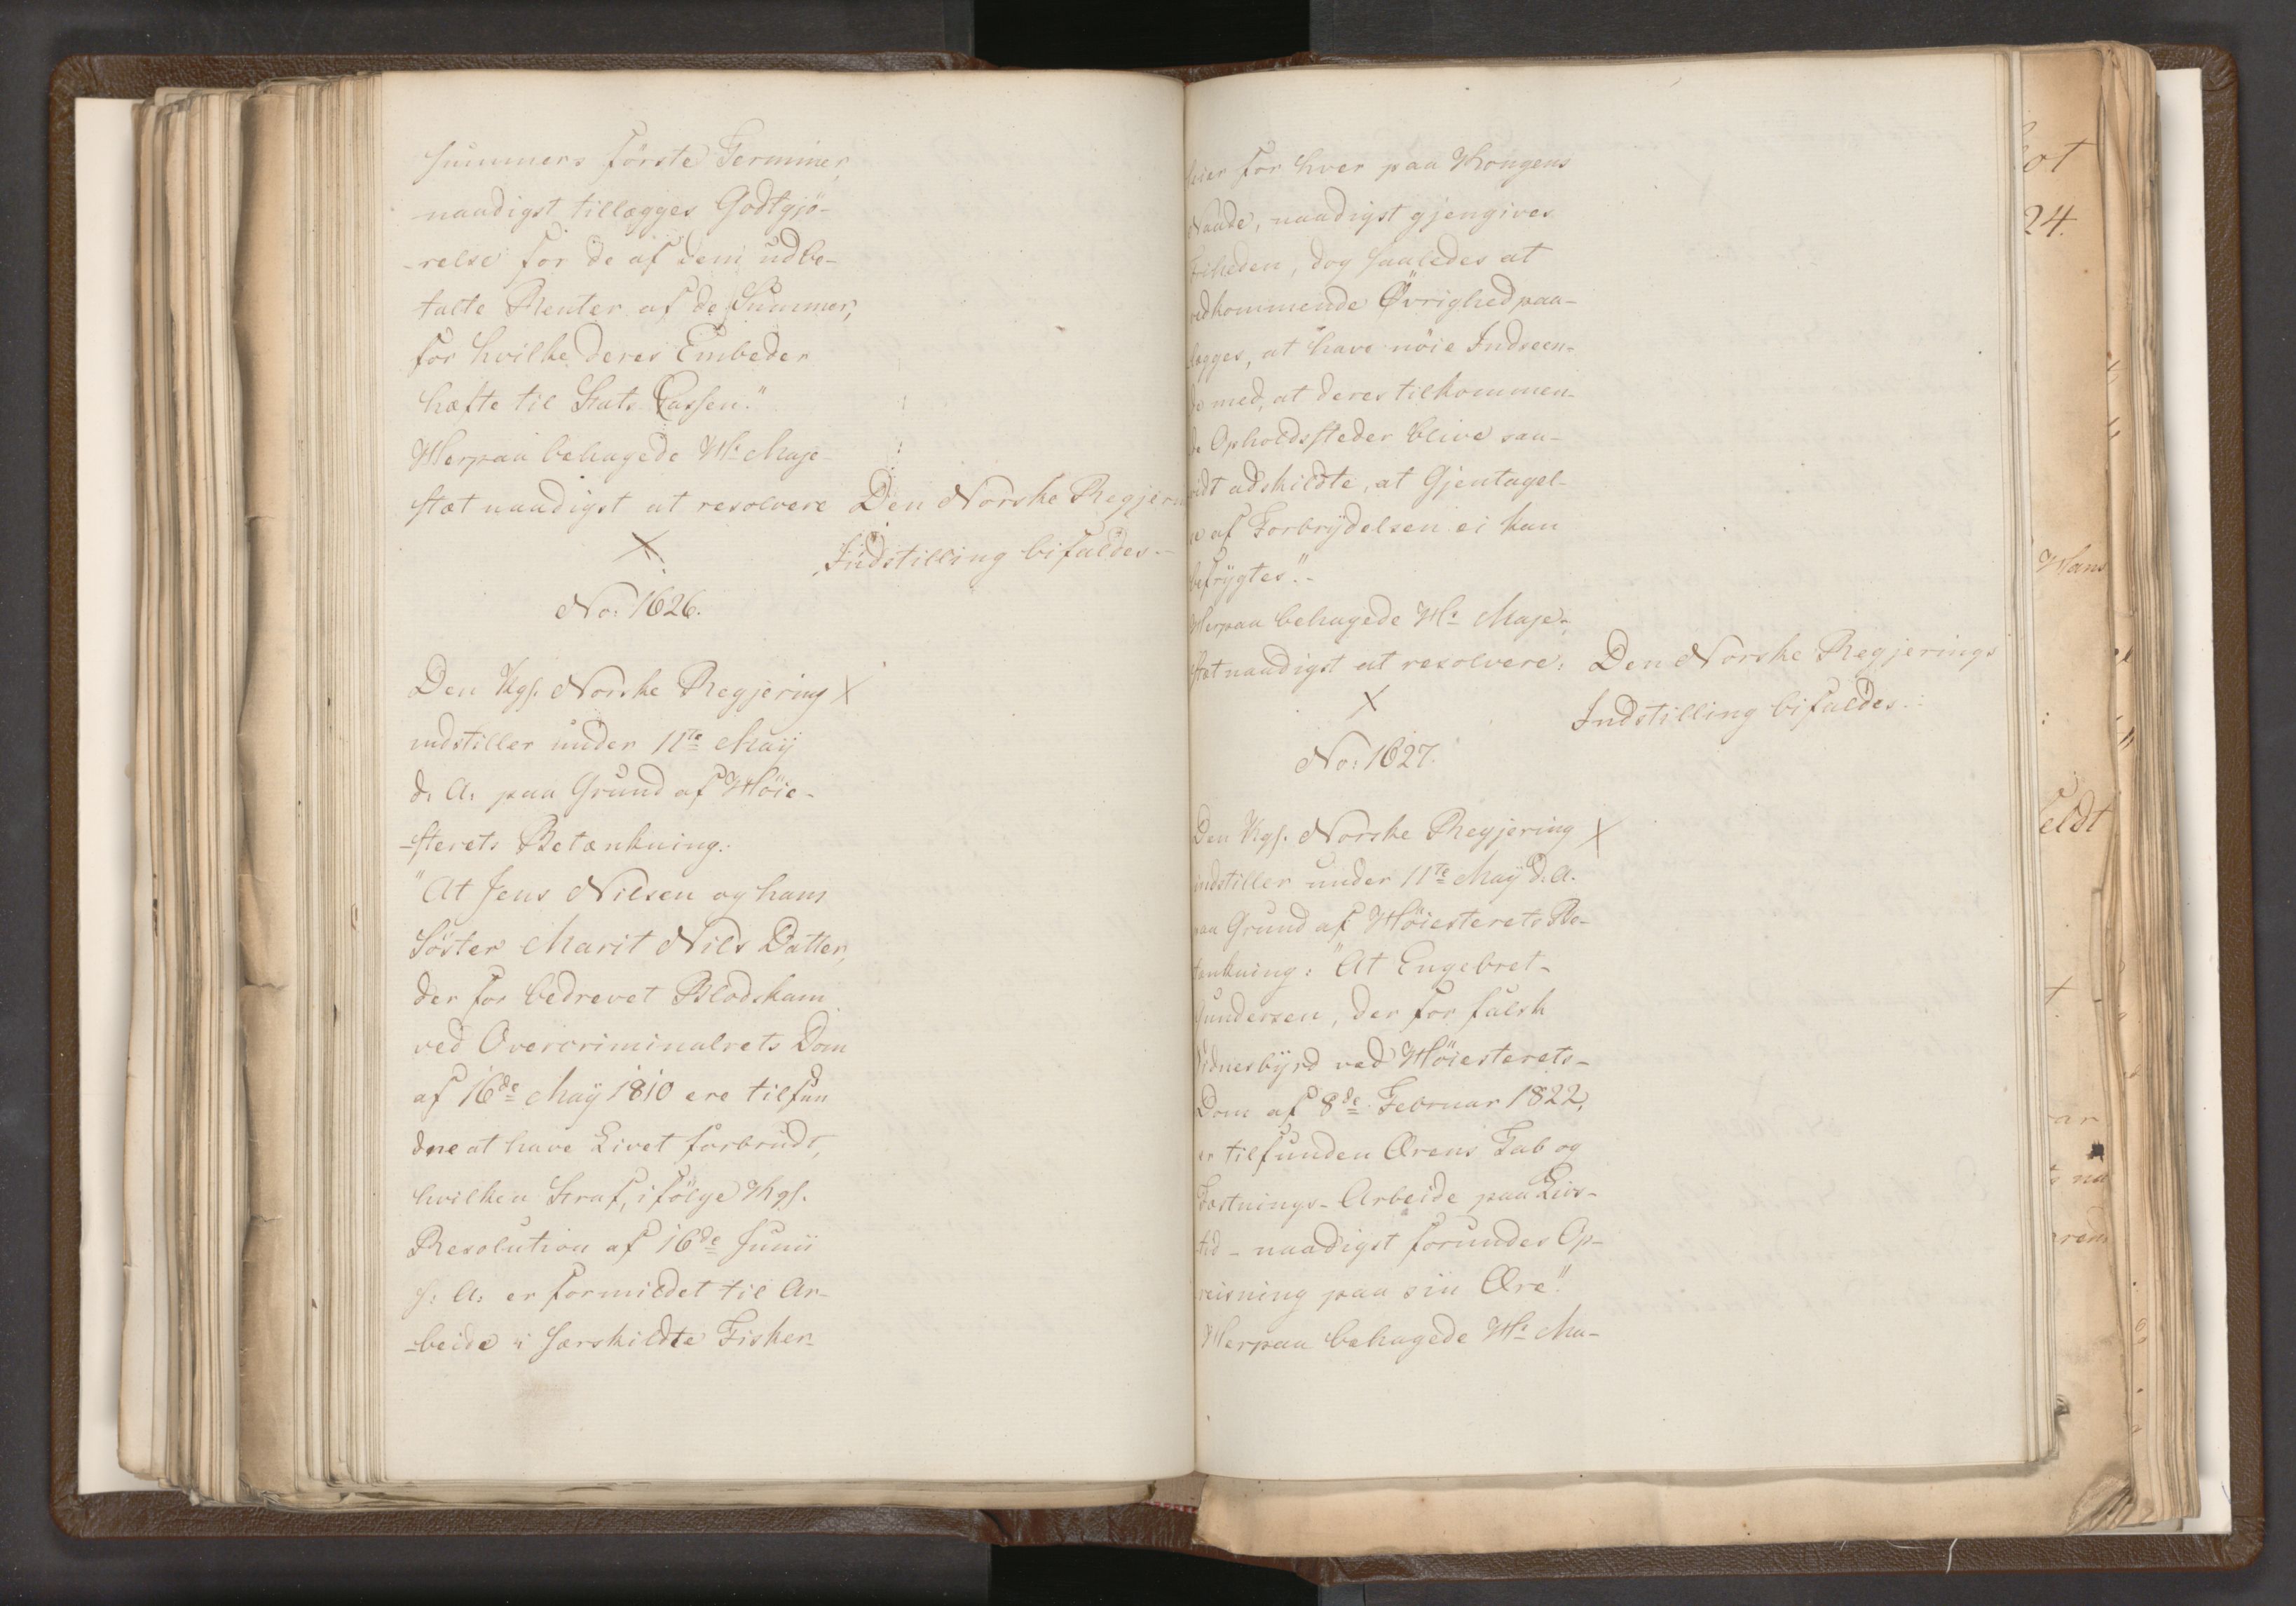 Summers förste Terminer,
naadigst tillægges Godtgjö-
-relse for de af dem udbe-
talte Renter af de Summer,
for hvilke deres Embeder
hæfte til Stats Cassen."
Herpaa behagede Hs. Maje-
stæt naadigst at resolvere Den Norske Regjer
Indstilling bifaldes.-
X
No: 1626.
Den Kgs. Norske Regjering X
indstiller under 11te Maÿ
d. A. paa Grund af Höie-
-sterets Betænkning:
"At Jens Nilsen og hans
Söster Marit Nils Datter,
der for bedrevet Blodskam
ved Overcriminalrets Dom
af 16de Maÿ 1810 ere tilfun
dne at have Livet forbrudt,
hvilken Straf, ifölge Kgs.
Resolution af 16de Junii
s: A: er formildet til Ar-
-beide i særskildte Fisker-
for hver paa Kongens
Naade, naadigst gjengives
Friheden, dog saaledes at
vedkommende Övrighed paa-
lægges, at have nöie Indseen-
de med, at deres tilkommen-
de Opholdssteder blive saa-
vidt adskildte, at Gjentagel-
se af Forbrÿdelsen ei kan
befrÿgtes."-
Herpaa behagede Hs. Maje-
stæt naadigst at resolvere: Den Norske Regjerings
Indstilling bifaldes.
X
No: 1627.
Den Kgs. Norske Regjering X
indstiller under 11te Maÿ d. A.
paa Grund af Höiesterets Be-
tænkning: "At Engebret
Gundersen, der for falsk
Vidnesbÿrd ved Höiesterets-
Dom af 8de Februar 1822,
er tilfunden Ærens Tab og
Fæstnings-Arbeide paa Livs-
tid - naadigst forundes Op-
reisning paa sin Ære."
Herpaa behagede Hs. Ma-
24.
Hans